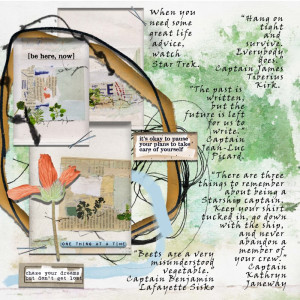 When you
need some
great life
advice,
watch
Star Trek.
"Hang on
tight
and
survive.
Everybody
does."
Captain James
Tiberius
Kirk.
[be here, now]
"The past is
written,
but the
future is left
for us to
write."
Captain
Jean-Luc
Picard
it's okay to pause
your plans to take
care of yourself
"There are three
things to remember
about being a
Starship captain.
Keep your shirt
tucked in, go down
with the ship,
and never
abandon a
member of
your crew."
Captain
Kathryn
Janeway
ONE THING AT A TIME
"Beets are a very
misunderstood
vegetable."
Captain Benjamin
Lafayette Sisko
chase your dreams
but don't get lost